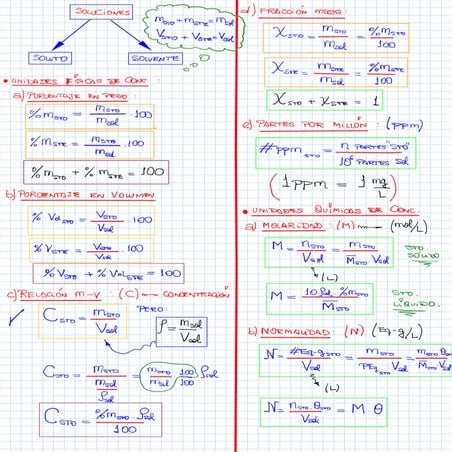 SOLUCIONES
m_STO + m_STE = m_sol
V_STO + V_STE = V_sol
SOLUTO
SOLVENTE
• UNIDADES FÍSICAS DE CONC. :
a) PORCENTAJE EN PESO :
% m_STO = m_STO / m_sol · 100
% m_STE = m_STE / m_sol · 100
% m_STO + % m_STE = 100
b) PORCENTAJE EN VOLUMEN
% Vol_STO = V_STO / V_sol · 100
% V_STE = V_STE / V_sol · 100
% V_STO + % Vol_STE = 100
c) RELACIÓN m-V : (C) → CONCENTRACIÓN
C_STO = m_STO / V_sol
PERO:
ρ = m_sol / V_sol
C_STO = m_STO / (m_sol / ρ_sol) = m_STO / m_sol · 100 / 100 · ρ_sol
C_STO = % m_STO · ρ_sol / 100
d) FRACCIÓN MASA :
X_STO = m_STO / m_sol = % m_STO / 100
X_STE = m_STE / m_sol = % m_STE / 100
X_STO + X_STE = 1
e) PARTES POR MILLÓN : (ppm)
# ppm_STO = n PARTES "STO" / 10⁶ PARTES Sol
(1 ppm = 1 mg / L)
• UNIDADES QUÍMICAS DE CONC.
a) MOLARIDAD : (M) → (mol/L)
M = n_STO / V_sol = m_STO / M̄_STO · V_sol
STO. SÓLIDO
(L)
M = 10 ρ_sol · % m_STO / M̄_STO
STO. LÍQUIDO.
b) NORMALIDAD : (N) (Eq-g/L)
N = # Eq-g_STO / V_sol = m_STO / PEq_STO · V_sol = m_STO · θ_STO / M̄_STO · V_sol
(L)
N = n_STO · θ_STO / V_sol = M · θ